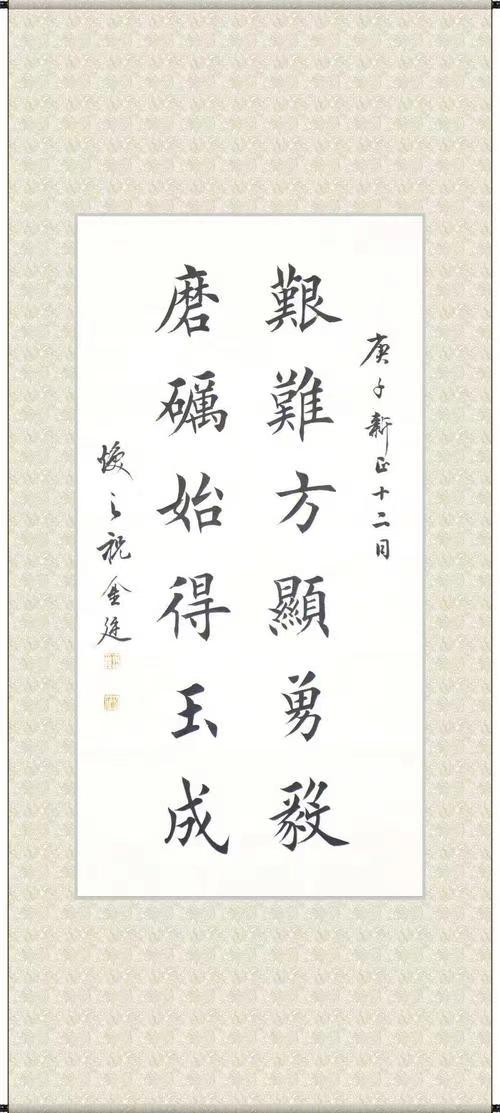 庚子新正十二日
艱難方顯勇毅
磨礪始得玉成
之祝金